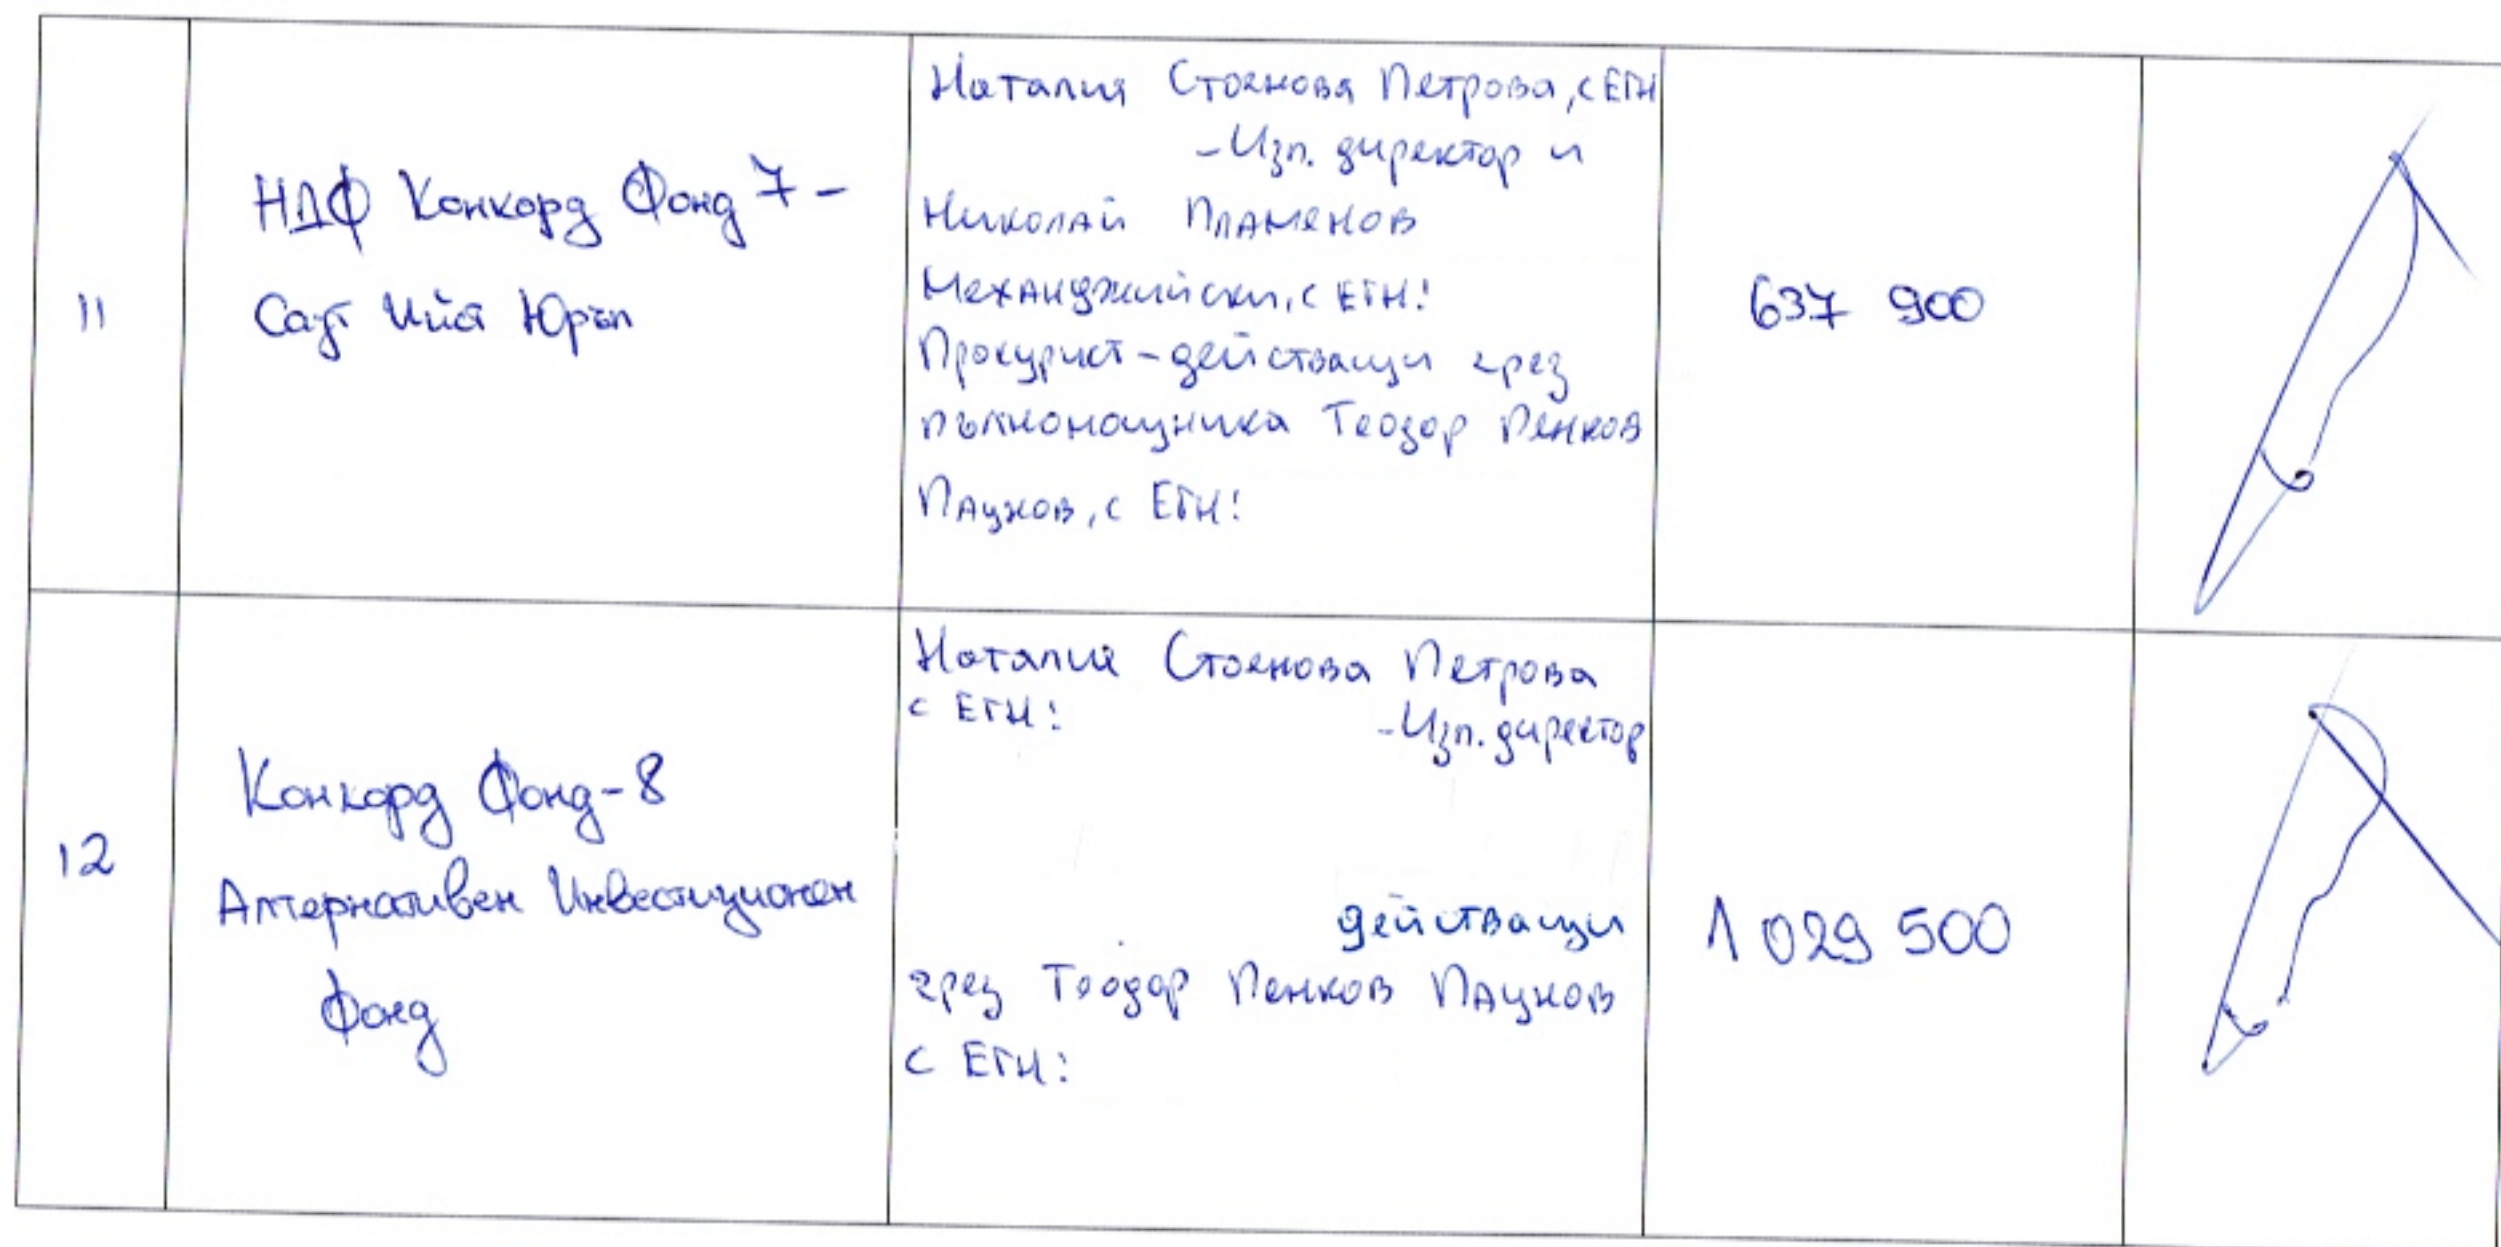 11
НДФ Конкорд Фонд 7 -
Саут Ийст Юръп
Наталия Стоянова Петрова, с ЕГН
- Изп. директор и
Николай Пламенов
Механджийски, с ЕГН:
Прокурист - действащи чрез
пълномощника Теодор Пенков
Паунов, с ЕГН:
637 900
12
Конкорд Фонд-8
Алтернативен Инвестиционен
Фонд
Наталия Стоянова Петрова
с ЕГН:
- Изп. директор
действащи
чрез Теодор Пенков Паунов
с ЕГН:
1 029 500